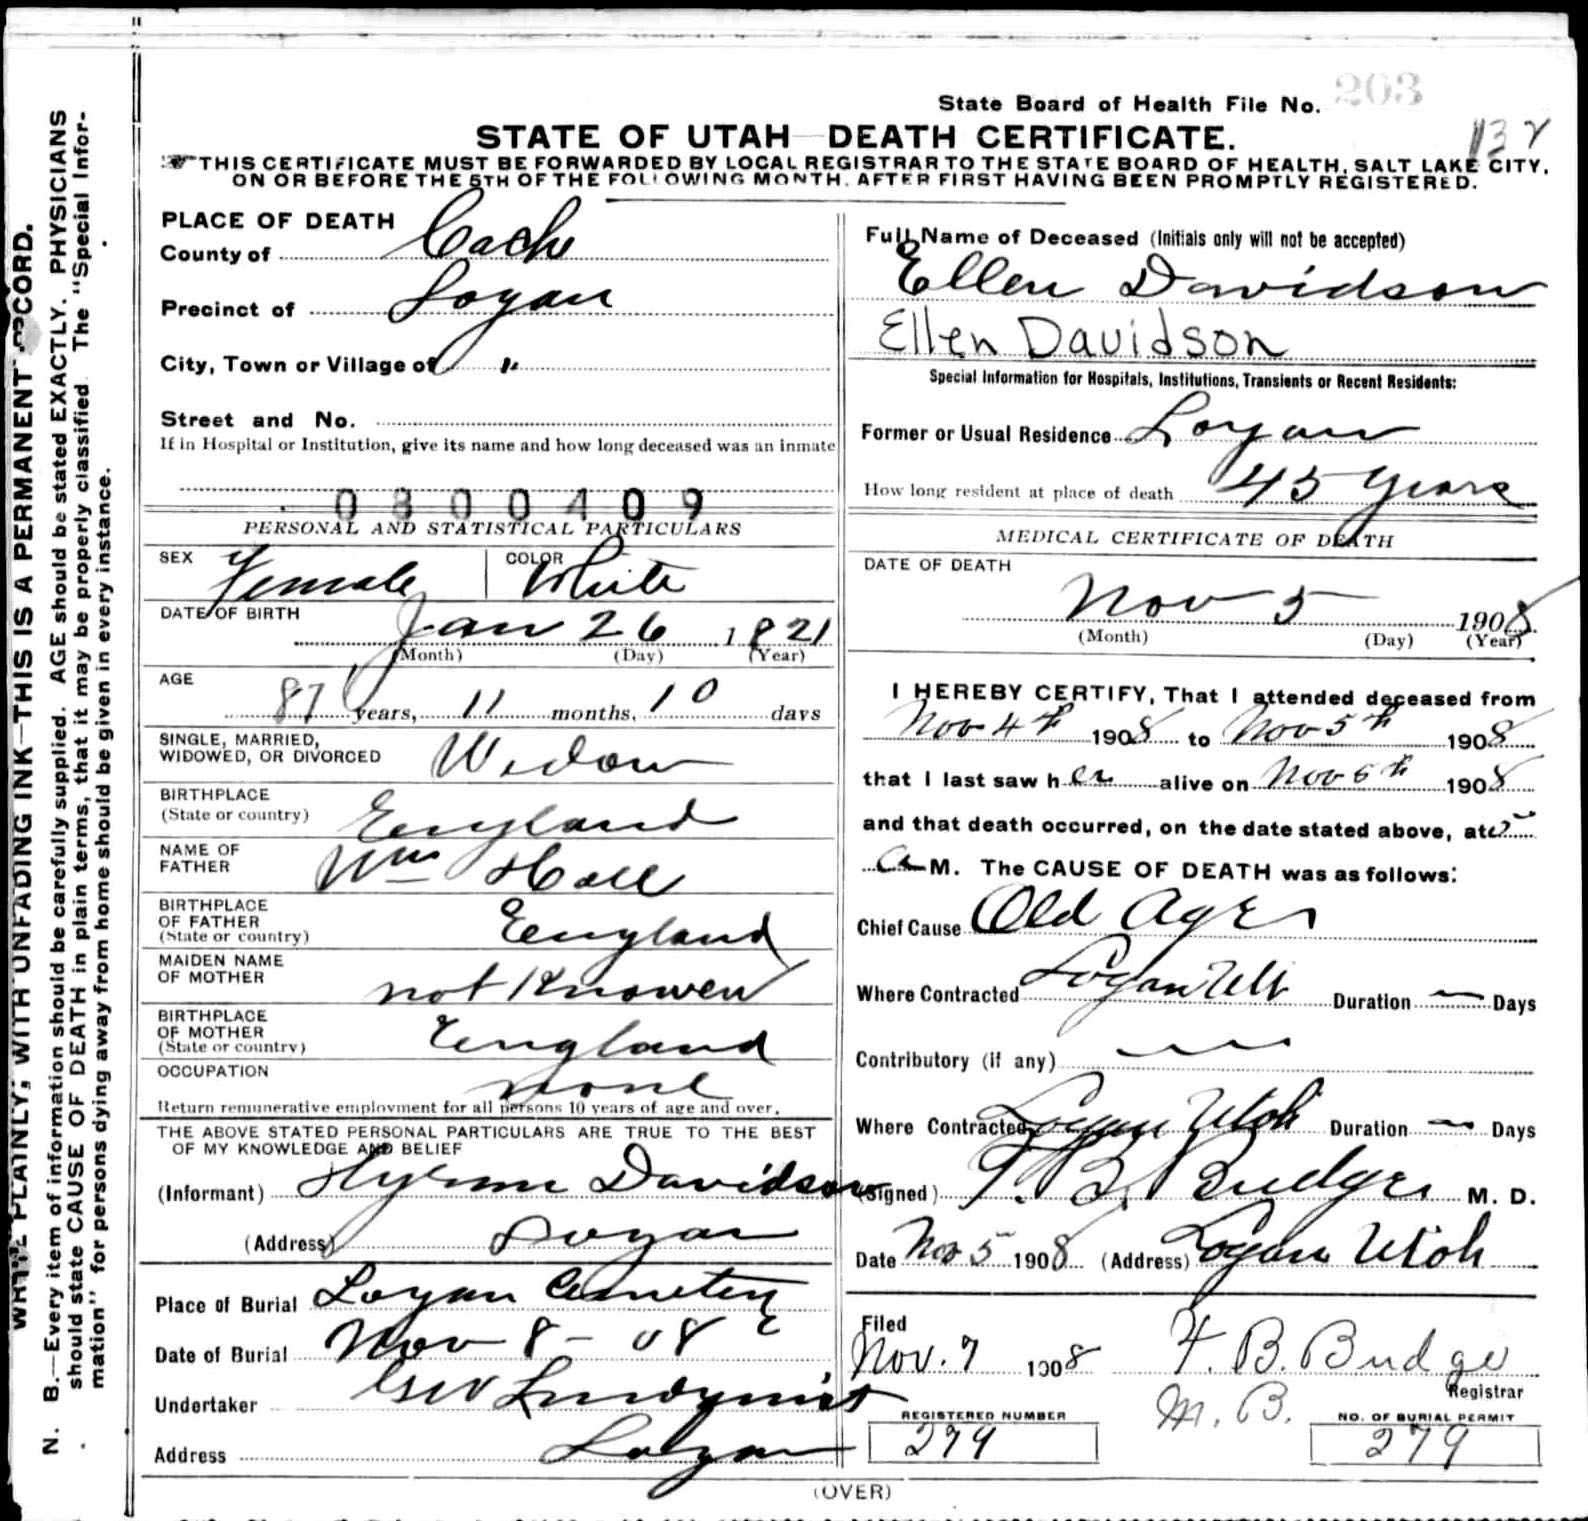 State Board of Health File No. 203
132
STATE OF UTAH—DEATH CERTIFICATE.
THIS CERTIFICATE MUST BE FORWARDED BY LOCAL REGISTRAR TO THE STATE BOARD OF HEALTH, SALT LAKE CITY,
ON OR BEFORE THE 5TH OF THE FOLLOWING MONTH, AFTER FIRST HAVING BEEN PROMPTLY REGISTERED.
WRITE PLAINLY, WITH UNFADING INK—THIS IS A PERMANENT RECORD.
N. B.—Every item of information should be carefully supplied. AGE should be stated EXACTLY. PHYSICIANS
should state CAUSE OF DEATH in plain terms, that it may be properly classified. The "Special Infor-
mation" for persons dying away from home should be given in every instance.
PLACE OF DEATH
County of Cache
Precinct of Logan
City, Town or Village of "
Street and No.
If in Hospital or Institution, give its name and how long deceased was an inmate
0300409
PERSONAL AND STATISTICAL PARTICULARS
SEX Female COLOR White
DATE OF BIRTH
Jan 26 1821
(Month) (Day) (Year)
AGE
87 years, 11 months, 10 days
SINGLE, MARRIED,
WIDOWED, OR DIVORCED Widow
BIRTHPLACE
(State or country) England
NAME OF
FATHER Wm Hall
BIRTHPLACE
OF FATHER
(State or country) England
MAIDEN NAME
OF MOTHER not Knowen
BIRTHPLACE
OF MOTHER
(State or country) England
OCCUPATION none
Return remunerative employment for all persons 10 years of age and over.
THE ABOVE STATED PERSONAL PARTICULARS ARE TRUE TO THE BEST
OF MY KNOWLEDGE AND BELIEF
(Informant) Hyrum Davidson
(Address) Logan
Place of Burial Logan Cemetery
Date of Burial Nov 8 - 08
Undertaker GW Lindquist
Address Logan
Full Name of Deceased (Initials only will not be accepted)
Ellen Davidson
Ellen Davidson
Special Information for Hospitals, Institutions, Transients or Recent Residents:
Former or Usual Residence Logan
How long resident at place of death 45 Years
MEDICAL CERTIFICATE OF DEATH
DATE OF DEATH
Nov 5 1908
(Month) (Day) (Year)
I HEREBY CERTIFY, That I attended deceased from
Nov 4th 1908 to Nov 5th 1908
that I last saw her alive on Nov 5th 1908
and that death occurred, on the date stated above, at
a M. The CAUSE OF DEATH was as follows:
Chief Cause Old Age
Where Contracted Logan Ut Duration — Days
Contributory (if any)
Where Contracted Logan Utah Duration — Days
(Signed) T. B. Budge M. D.
Date Nov 5 1908 (Address) Logan Utah
Filed
Nov. 7 1908 F. B. Budge
Registrar
M. B.
REGISTERED NUMBER
279
NO. OF BURIAL PERMIT
279
(OVER)